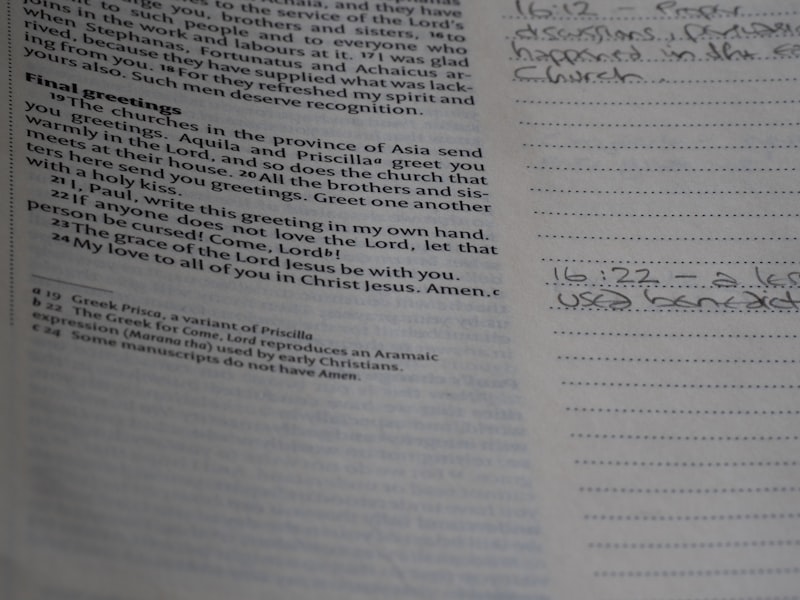 you, brothers and sisters, 16 to
to such people and to everyone who
joins in the work and labours at it. 17 I was glad
when Stephanas, Fortunatus and Achaicus ar-
rived, because they have supplied what was lack-
ing from you. 18 For they refreshed my spirit and
yours also. Such men deserve recognition.
Final greetings
19 The churches in the province of Asia send
you greetings. Aquila and Priscilla a greet you
warmly in the Lord, and so does the church that
meets at their house. 20 All the brothers and sis-
ters here send you greetings. Greet one another
with a holy kiss.
21 I, Paul, write this greeting in my own hand.
22 If anyone does not love the Lord, let that
person be cursed! Come, Lord b!
23 The grace of the Lord Jesus be with you.
24 My love to all of you in Christ Jesus. Amen. c
a 19 Greek Prisca, a variant of Priscilla
b 22 The Greek for Come, Lord reproduces an Aramaic
expression (Marana tha) used by early Christians.
c 24 Some manuscripts do not have Amen.
16:12 –
discussions,
happened in the
Church.
16:22 – a
used